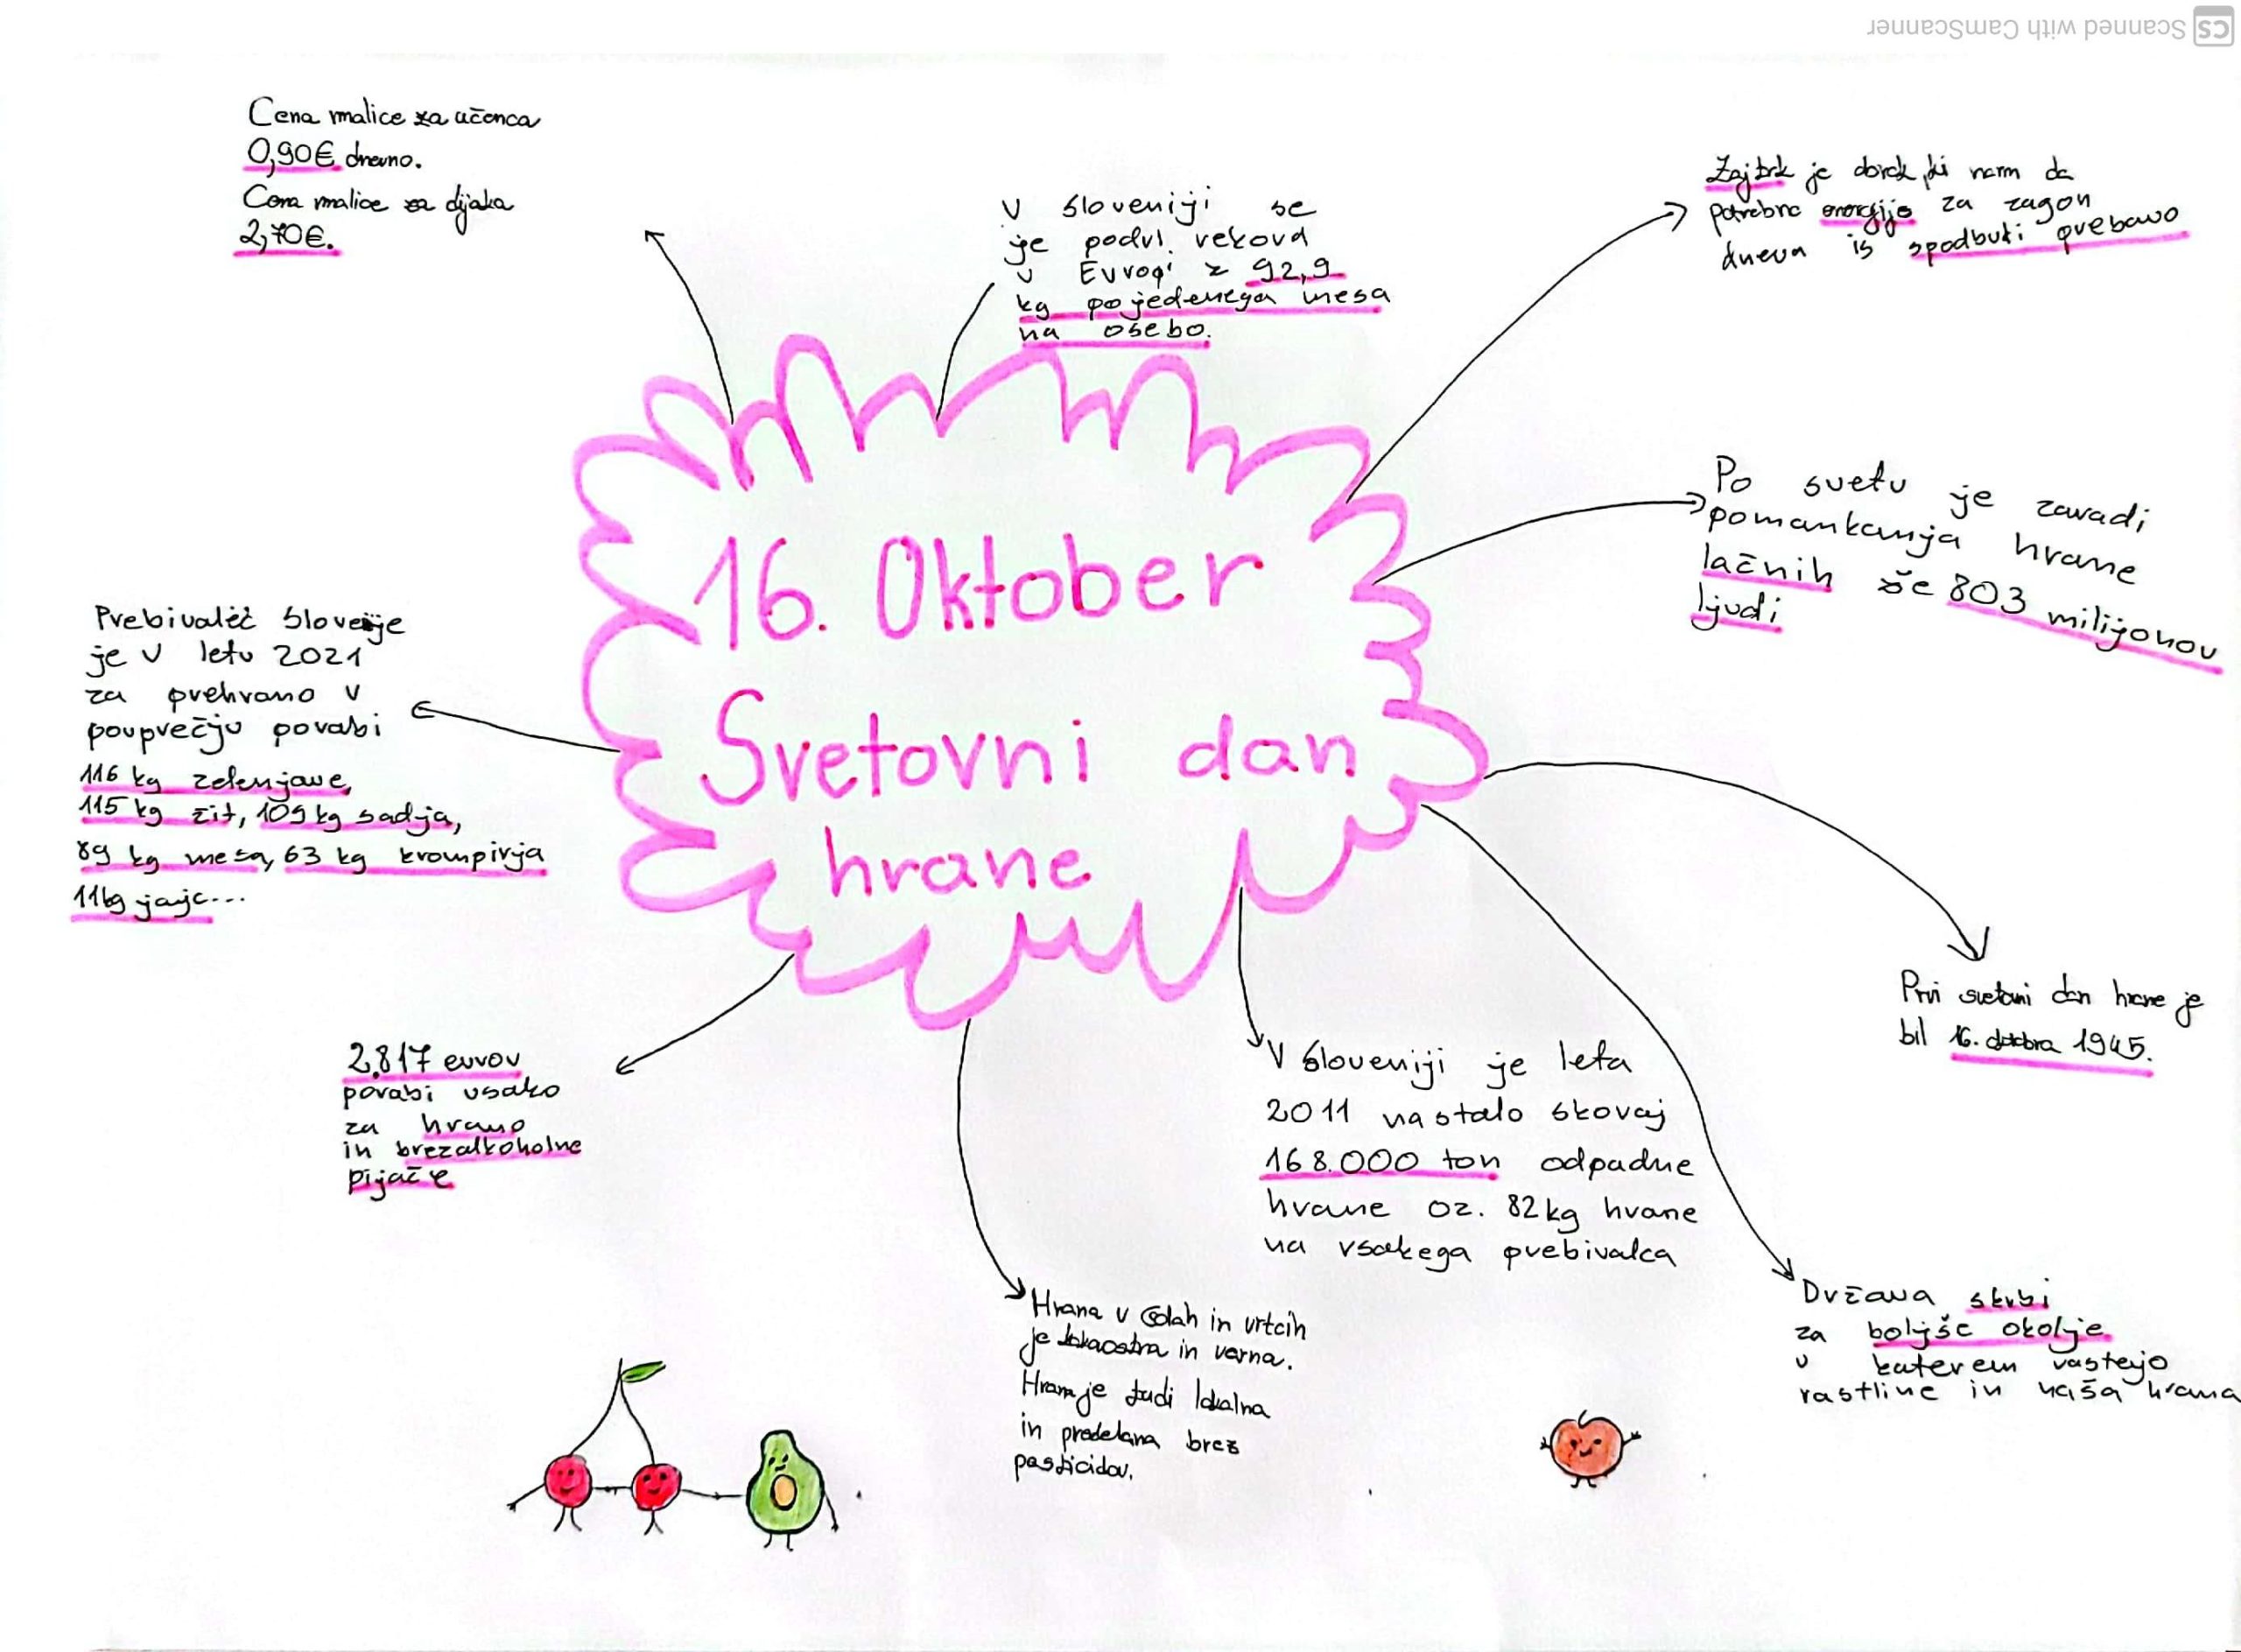 Scanned with CamScanner
Cena malice za učenca
0,90€ dnevno.
Cena malice za dijaka
2,70€.
V Sloveniji se
je podrl rekord
v Evropi z 92,9
kg pojedenega mesa
na osebo.
Zajtrk je obrok, ki nam da
potrebno energijo za zagon
dneva is spodbudi prebavo
Po svetu je zaradi
pomankanja hrane
lačnih še 803 milijonov
ljudi
16. Oktober
Svetovni dan
hrane
Prebivalec Slovenije
je v letu 2021
za prehrano v
pouprečju porabi
116 kg zelenjave,
115 kg žit, 109 kg sadja,
89 kg mesa, 63 kg krompirja
11kg jajc...
Prvi svetovni dan hrane je
bil 16. oktobra 1945.
2.817 eurov
porabi vsako
za hrano
in brezalkoholne
pijače
V Sloveniji je leta
2011 nastalo skoraj
168.000 ton odpadne
hrane oz. 82kg hrane
na vsakega prebivalca
Hrana v šolah in vrtcih
je in varna.
Hrana je tudi lokalna
in predelana brez
pesticidov.
Država skrbi
za boljše okolje
v katerem rastejo
rastline in naša hrana